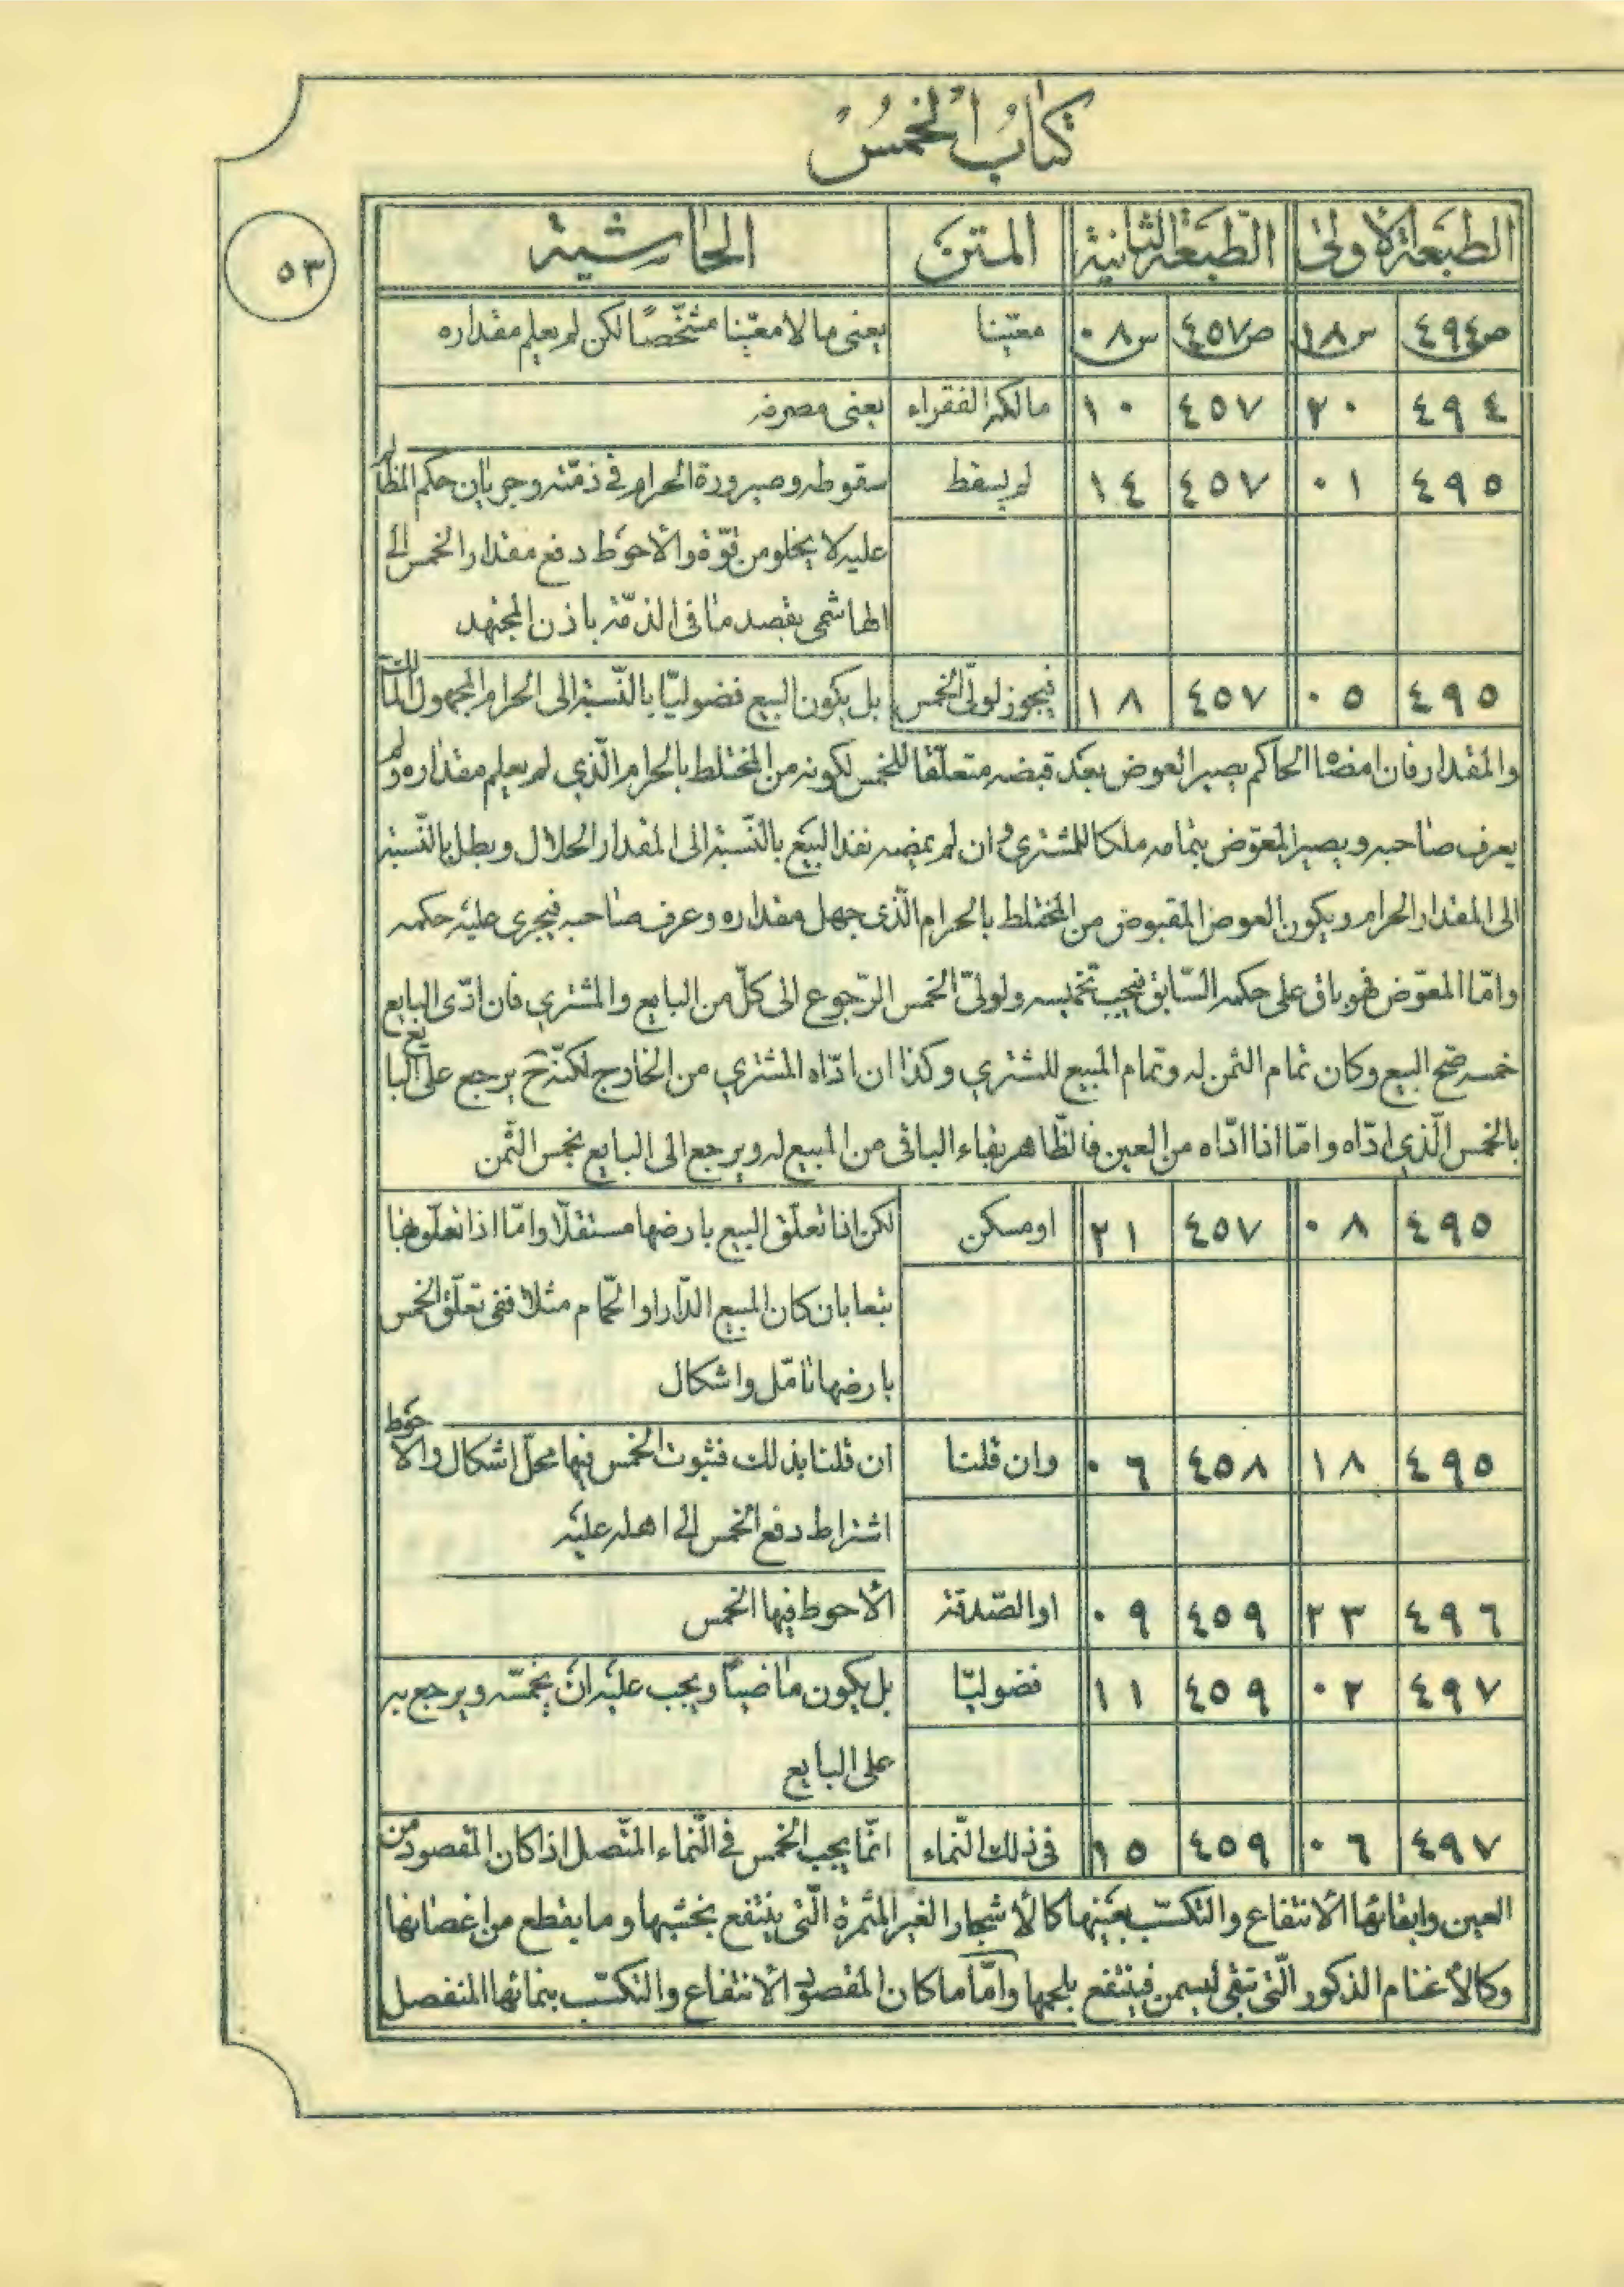 كتاب الخمس
٥٣
الطبعة الأولى الطبعة الثانية المتن الحاشية
ص٤٩٤ س١٨ ص٤٥٧ س٠٨ معيّنا يعنى مالا معيّنا مشخّصاً لكن لم يعلم مقداره
٤٩٤ ٢٠ ٤٥٧ ١٠ مالكه الفقراء يعنى مصرفه
٤٩٥ ٠١ ٤٥٧ ١٤ لم يسقط سقوطه وصيرورة الحرام فى ذمّته وجريان حكم المظالم
عليه لا يخلو من قوّة والأحوط دفع مقدار الخمس الى
الهاشمى بقصد ما فى الذمّة باذن المجتهد
٤٩٥ ٠٥ ٤٥٧ ١٨ فيجوز لولىّ الخمس بل يكون البيع فضوليّا بالنّسبة الى الحرام المجهول المالك
والمقدار فان امضاه الحاكم يصير العوض بعد قبضه متعلّقا للخمس لكونه من المختلط بالحرام الّذي لم يعلم مقداره ولم
يعرف صاحبه ويصير المعوّض بتمامه ملكا للمشترى وان لم يمضه نفذ البيع بالنّسبة الى المقدار الحلال وبطل بالنّسبة
الى المقدار الحرام ويكون العوض المقبوض من المختلط بالحرام الّذى جهل مقداره وعرف صاحبه فيجرى عليه حكمه
وامّا المعوّض فهو باق على حكمه السّابق فيجب تخميسه ولولىّ الخمس الرّجوع الى كلّ من البايع والمشتري فان ادّى البايع
خمسه صحّ البيع وكان تمام الثمن له وتمام المبيع للمشتري وكذا ان ادّاه المشتري من الخارج لكنّه ح يرجع على البايع
بالخمس الّذي ادّاه وامّا اذا ادّاه من العين فالظّاهر بقاء الباقى من المبيع له ويرجع الى البايع بخمس الثّمن
٤٩٥ ٠٨ ٤٥٧ ٢١ او مسكن لكن اذا تعلّق البيع بارضها مستقلّا وامّا اذا تعلّق بها
تبعا بان كان المبيع الدّار او الحمّام مثلا ففى تعلّق الخمس
بارضها تامّل واشكال
٤٩٥ ١٨ ٤٥٨ ٠٦ وان قلنا ان قلنا بذلك فثبوت الخمس فيها محلّ اشكال والأحوط
اشتراط دفع الخمس الى اهله عليه
٤٩٦ ٢٣ ٤٥٩ ٠٩ او الصّدقة الأحوط فيها الخمس
٤٩٧ ٠٢ ٤٥٩ ١١ فضوليّا بل يكون ماضياً ويجب عليه ان يخمّسه ويرجع به
على البايع
٤٩٧ ٠٦ ٤٥٩ ١٥ فى ذلك النّماء انّما يجب الخمس فى النّماء المتّصل اذا كان المقصود من
العين وابقائها الأنتفاع والتكسّب بعينها كالأشجار الغير المثمرة الّتى ينتفع بخشبها وما يقطع من اغصانها
وكالأغنام الذكور الّتى تبقى ليسمن فينتفع بلحمها وامّا ما كان المقصود الأنتفاع والتكسّب بنمائها المنفصل